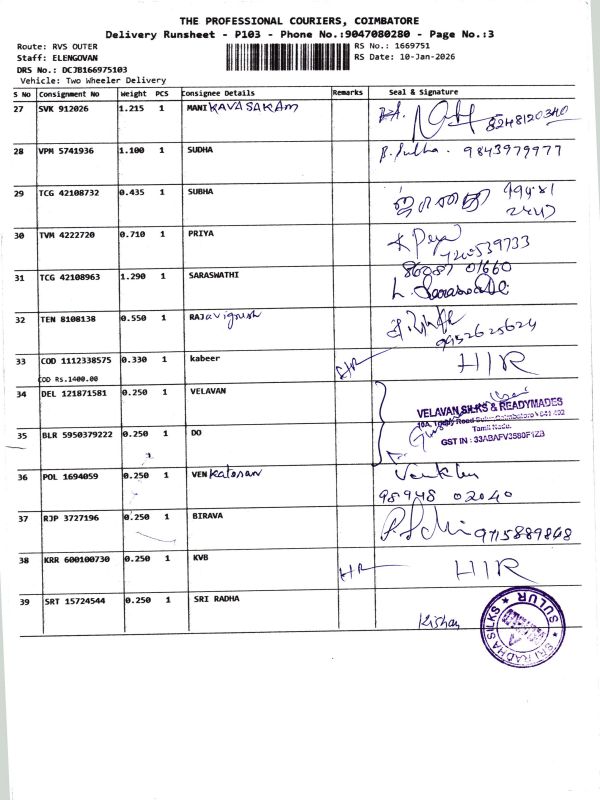 THE PROFESSIONAL COURIERS, COIMBATORE
Delivery Runsheet - P103 - Phone No.:9047080280 - Page No.:3
Route: RVS OUTER
RS No.: 1669751
Staff: ELENGOVAN
RS Date: 10-Jan-2026
DRS No.: DCJB166975103
Vehicle: Two Wheeler Delivery
S No Consignment No Weight PCS Consignee Details Remarks Seal & Signature
27 SVK 912026 1.215 1 MANIKAVASAKAM 8248120340
28 VPM 5741936 1.100 1 SUDHA B. Sudha. 9843979977
29 TCG 42108732 0.435 1 SUBHA 99481
2247
30 TVM 4222720 0.710 1 PRIYA K Priya
7200539733
31 TCG 42108963 1.290 1 SARASWATHI 86087 01660
L. Saraswathi
32 TEN 8108138 0.550 1 RAJavignesh
9952625624
33 COD 1112338575 0.330 1 kabeer H/R H/R
COD Rs.1400.00
34 DEL 121871581 0.250 1 VELAVAN
VELAVAN SILKS & READYMADES
Tamil Nadu.
GST IN : 33ABAFV3580F1ZB
35 BLR 5950379222 0.250 1 DO
36 POL 1694059 0.250 1 VENKatesan
98948 02040
37 RJP 3727196 0.250 1 BIRAVA 9715889868
38 KRR 600100730 0.250 1 KVB H/R H/R
39 SRT 15724544 0.250 1 SRI RADHA Kishan
SRI RADHA SILKS * SULUR *